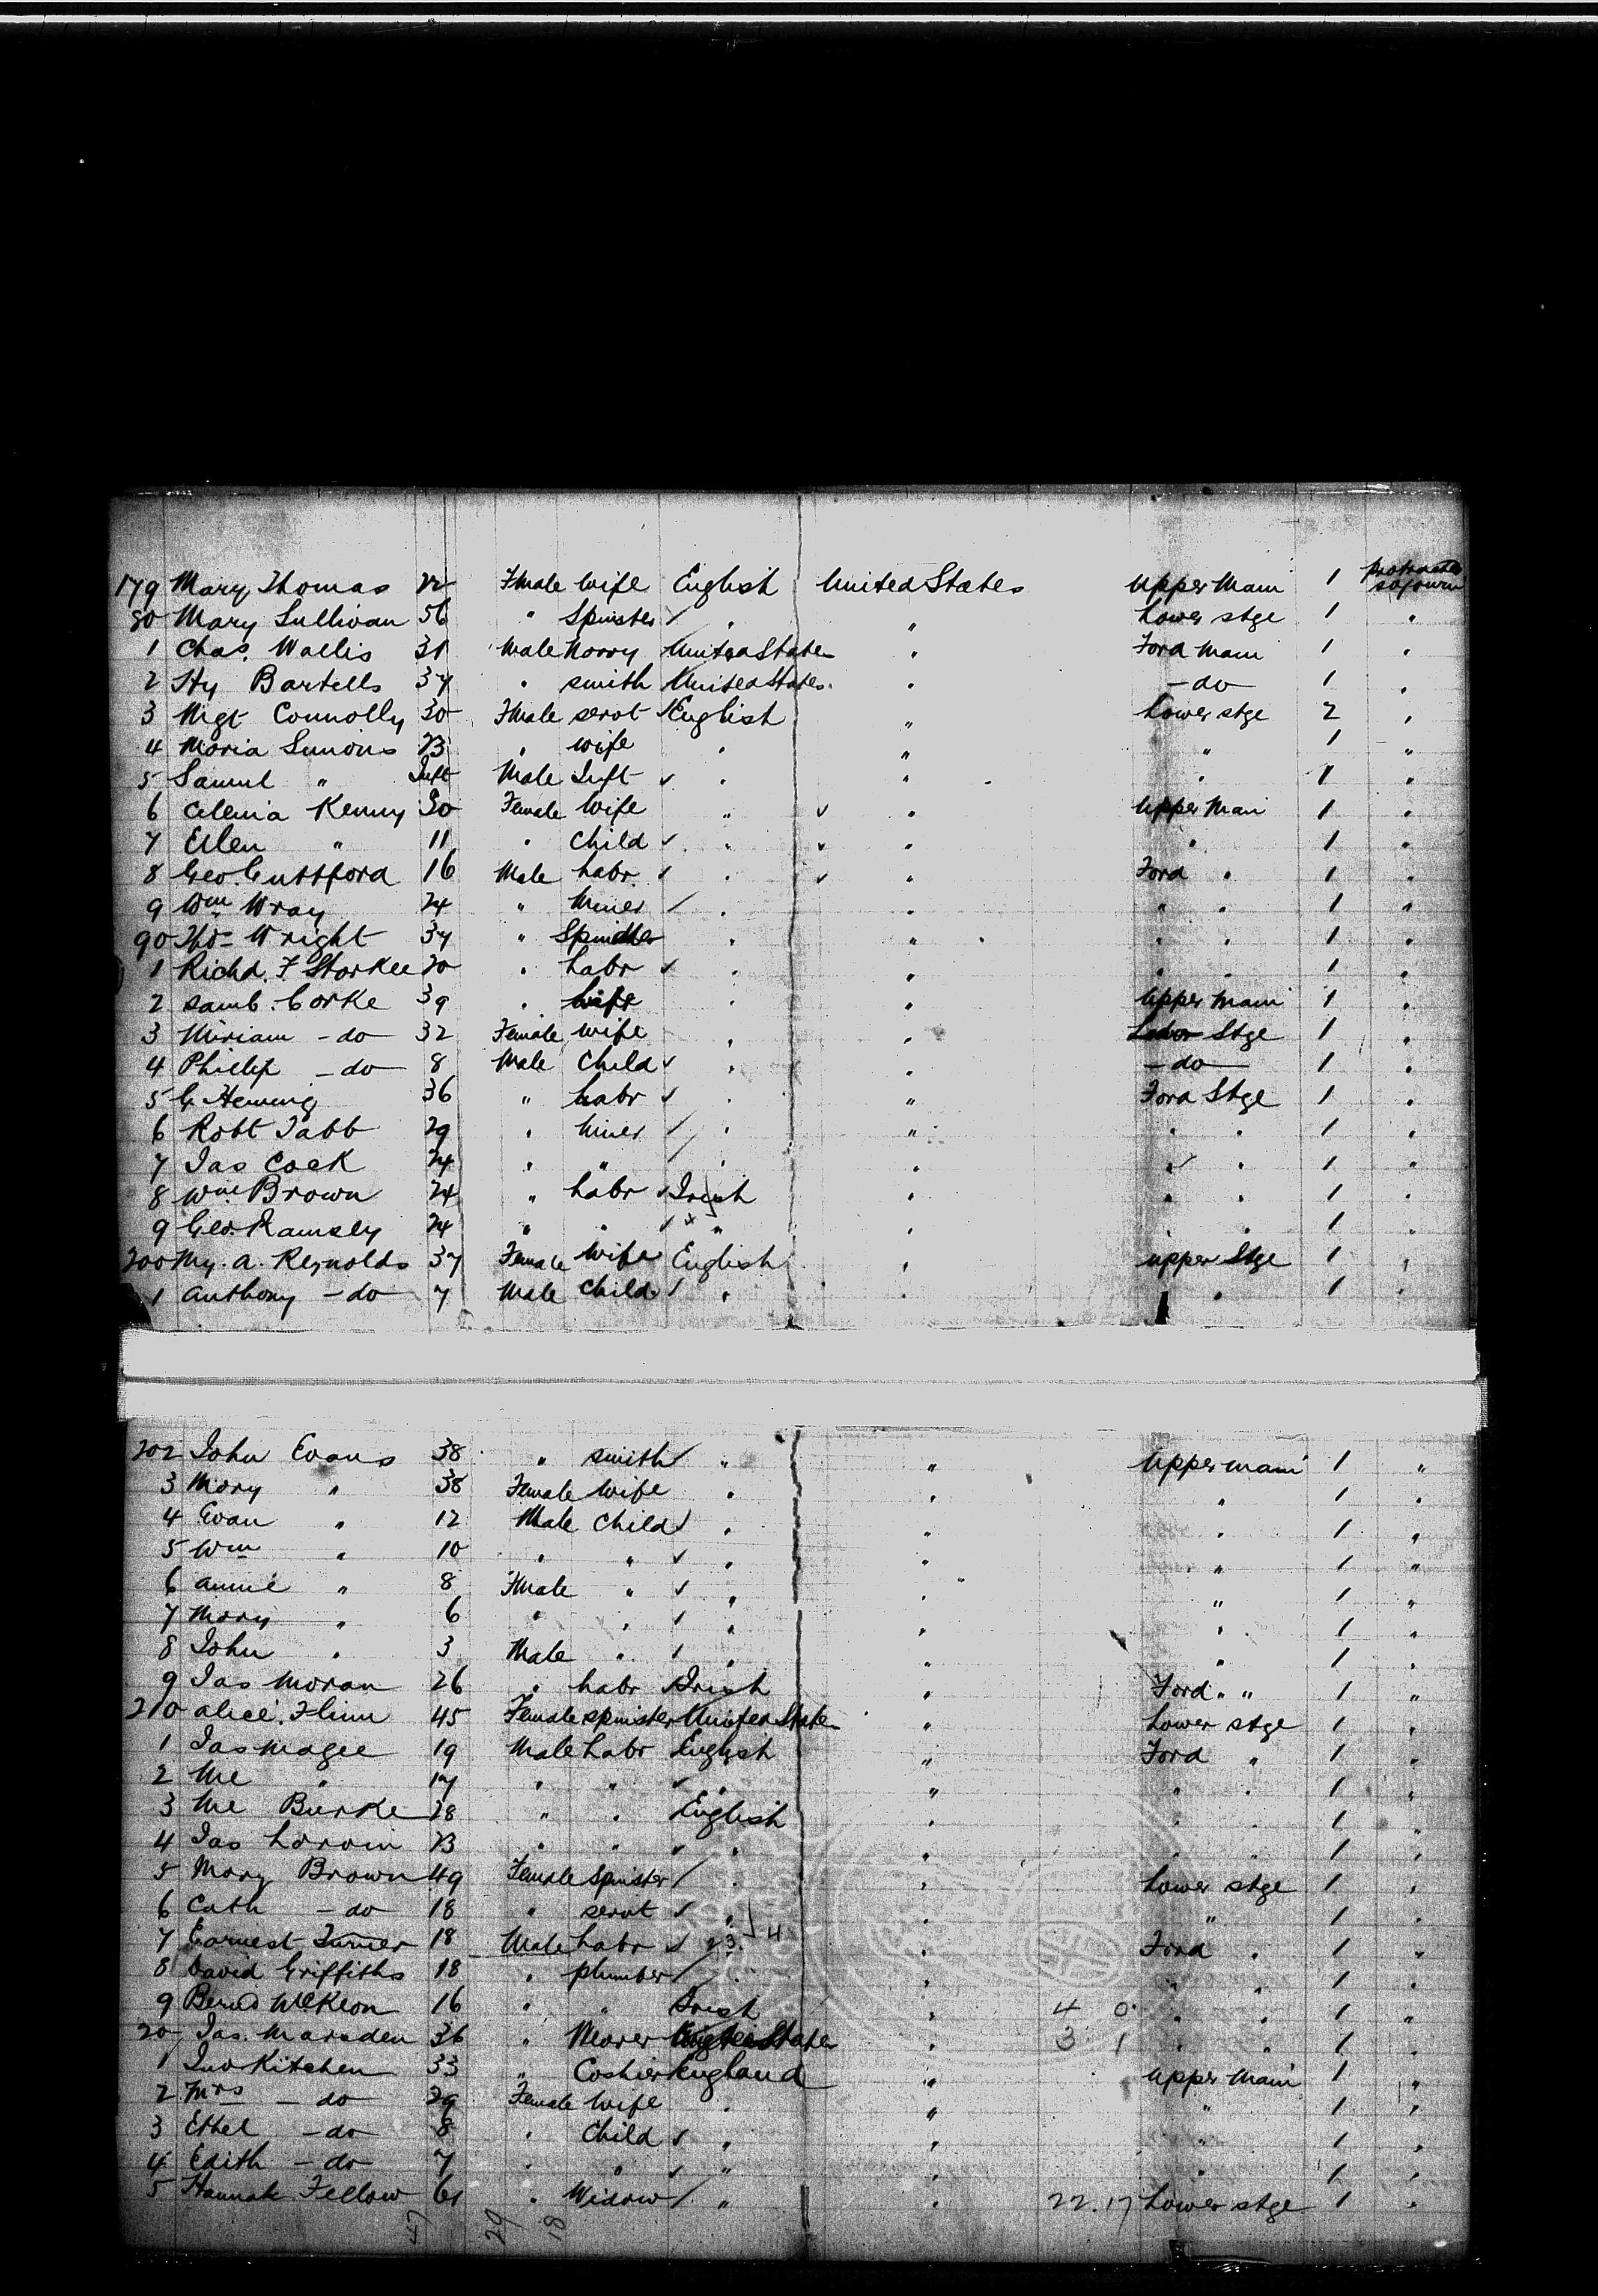 179 Mary Thomas 22 Fmale Wife English United States Upper Main 1 Protracted sojourn
80 Mary Sullivan 56 " Spinster " " Lower stge 1 "
1 Chas. Wallis 31 Male United States " Ford Main 1 "
2 Hy Bartells 37 " smith United States " - do - 1 "
3 Mgt Connolly 30 Fmale servt English " Lower stge 2 "
4 Maria Simons 23 " wife " " " 1 "
5 Saml " Inft Male Inft " " " 1 "
6 Kenny 30 Female Wife " " Upper Main 1 "
7 Ellen " 11 " Child " " " 1 "
8 Geo. Guttford 16 Male Labr " " Ford " 1 "
9 Wm Wray 24 " Miner " " " " 1 "
90 Thos Wright 37 " " " " " 1 "
1 Richd. F Starkee 20 " Labr " " " " 1 "
2 Saml. Corke 39 " " " Upper Main 1 "
3 Miriam - do 32 Female wife " " Stge 1 "
4 Phillip - do - 8 Male Child " " - do - 1 "
5 G. Heming 36 " Labr " " Ford Stge 1 "
6 Robt Tabb 29 " Miner " " " " 1 "
7 Jas Cock 24 " " " " " " 1 "
8 Wm Brown 24 " Labr Irish " " " 1 "
9 Geo. Ramsey 24 " " " " " " 1 "
200 My. A. Reynolds 37 Female Wife English " Upper Stge 1 "
1 Anthony - do - 7 Male Child " " " 1 "
202 John Evans 38 " smith " " Upper Main 1 "
3 Mary " 38 Female Wife " " " 1 "
4 Evan " 12 Male Child " " " 1 "
5 Wm " 10 " " " " " 1 "
6 Annie " 8 Fmale " " " " 1 "
7 Mary " 6 " " " " " 1 "
8 John " 3 Male " " " " 1 "
9 Jas Moran 26 " Labr Irish " Ford " " 1 "
210 Alice Flinn 45 Female spinster United States " Lower stge 1 "
1 Jas Magee 19 Male Labr English " Ford " 1 "
2 Ml " 17 " " " " " " 1 "
3 Ml Burke 28 " " English " " " 1 "
4 Jas 23 " " " " " " 1 "
5 Mary Brown 49 Female Spinster " " Lower stge 1 "
6 Cath - do 18 " servt " " " 1 "
7 Earnest Turner 18 Male Labr 23 4 " Ford " 1 "
8 David Griffiths 18 " plumber " " " " 1 "
9 Bernd McKeon 16 " " Irish " 4 0 " " 1 "
20 Jas. Marsden 36 " States " 3 1 " " 1 "
1 Jno Kitchen 33 " England " Upper Main 1 "
2 Mrs - do 29 Female Wife " " " 1 "
3 Ethel - do 8 " Child " " " 1 "
4 Edith - do 7 " " " " " 1 "
5 Hannah Fellow 61 " Widow " " 22.17 Lower stge 1 "
47 29 18